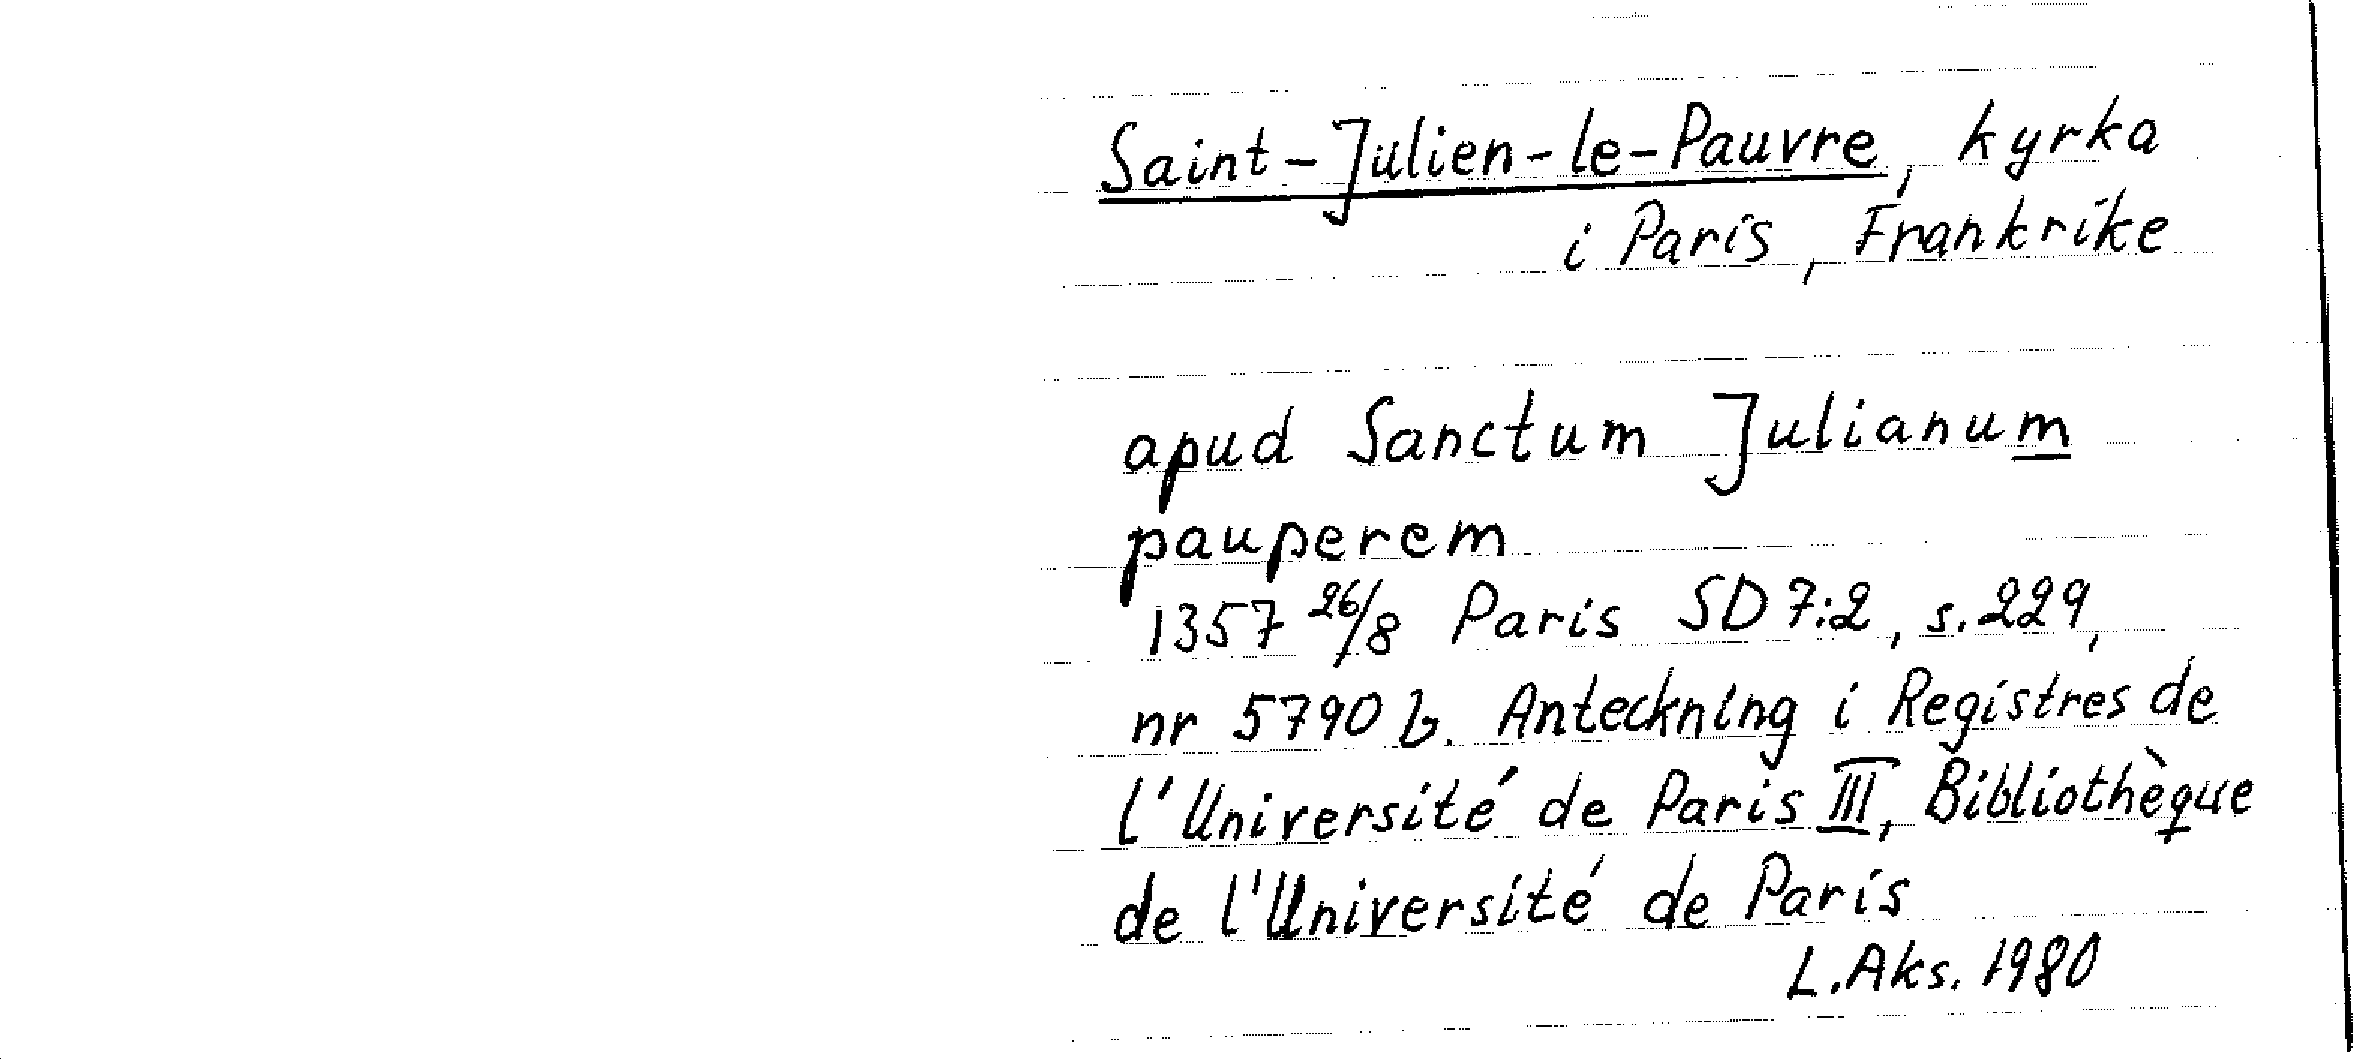 Saint-Julien-le-Pauvre, kyrka
i Paris, Frankrike
apud Sanctum Julianum
pauperem
1357 26/8 Paris SD 7:2, s. 229,
nr 5790 b. Anteckning i Registres de
l'Université de Paris III, Bibliothèque
de l'Université de Paris
L. Aks. 1980